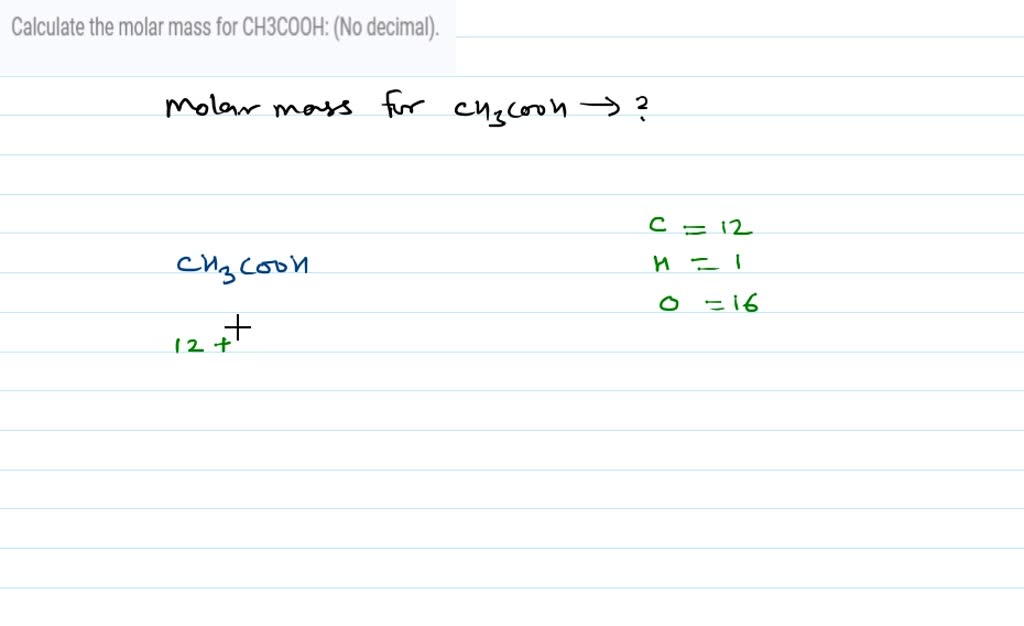 Calculate the molar mass for CH3COOH: (No decimal).
Molar mass for CH3COOH → ?
C = 12
CH3COOH
H = 1
O = 16
12 +